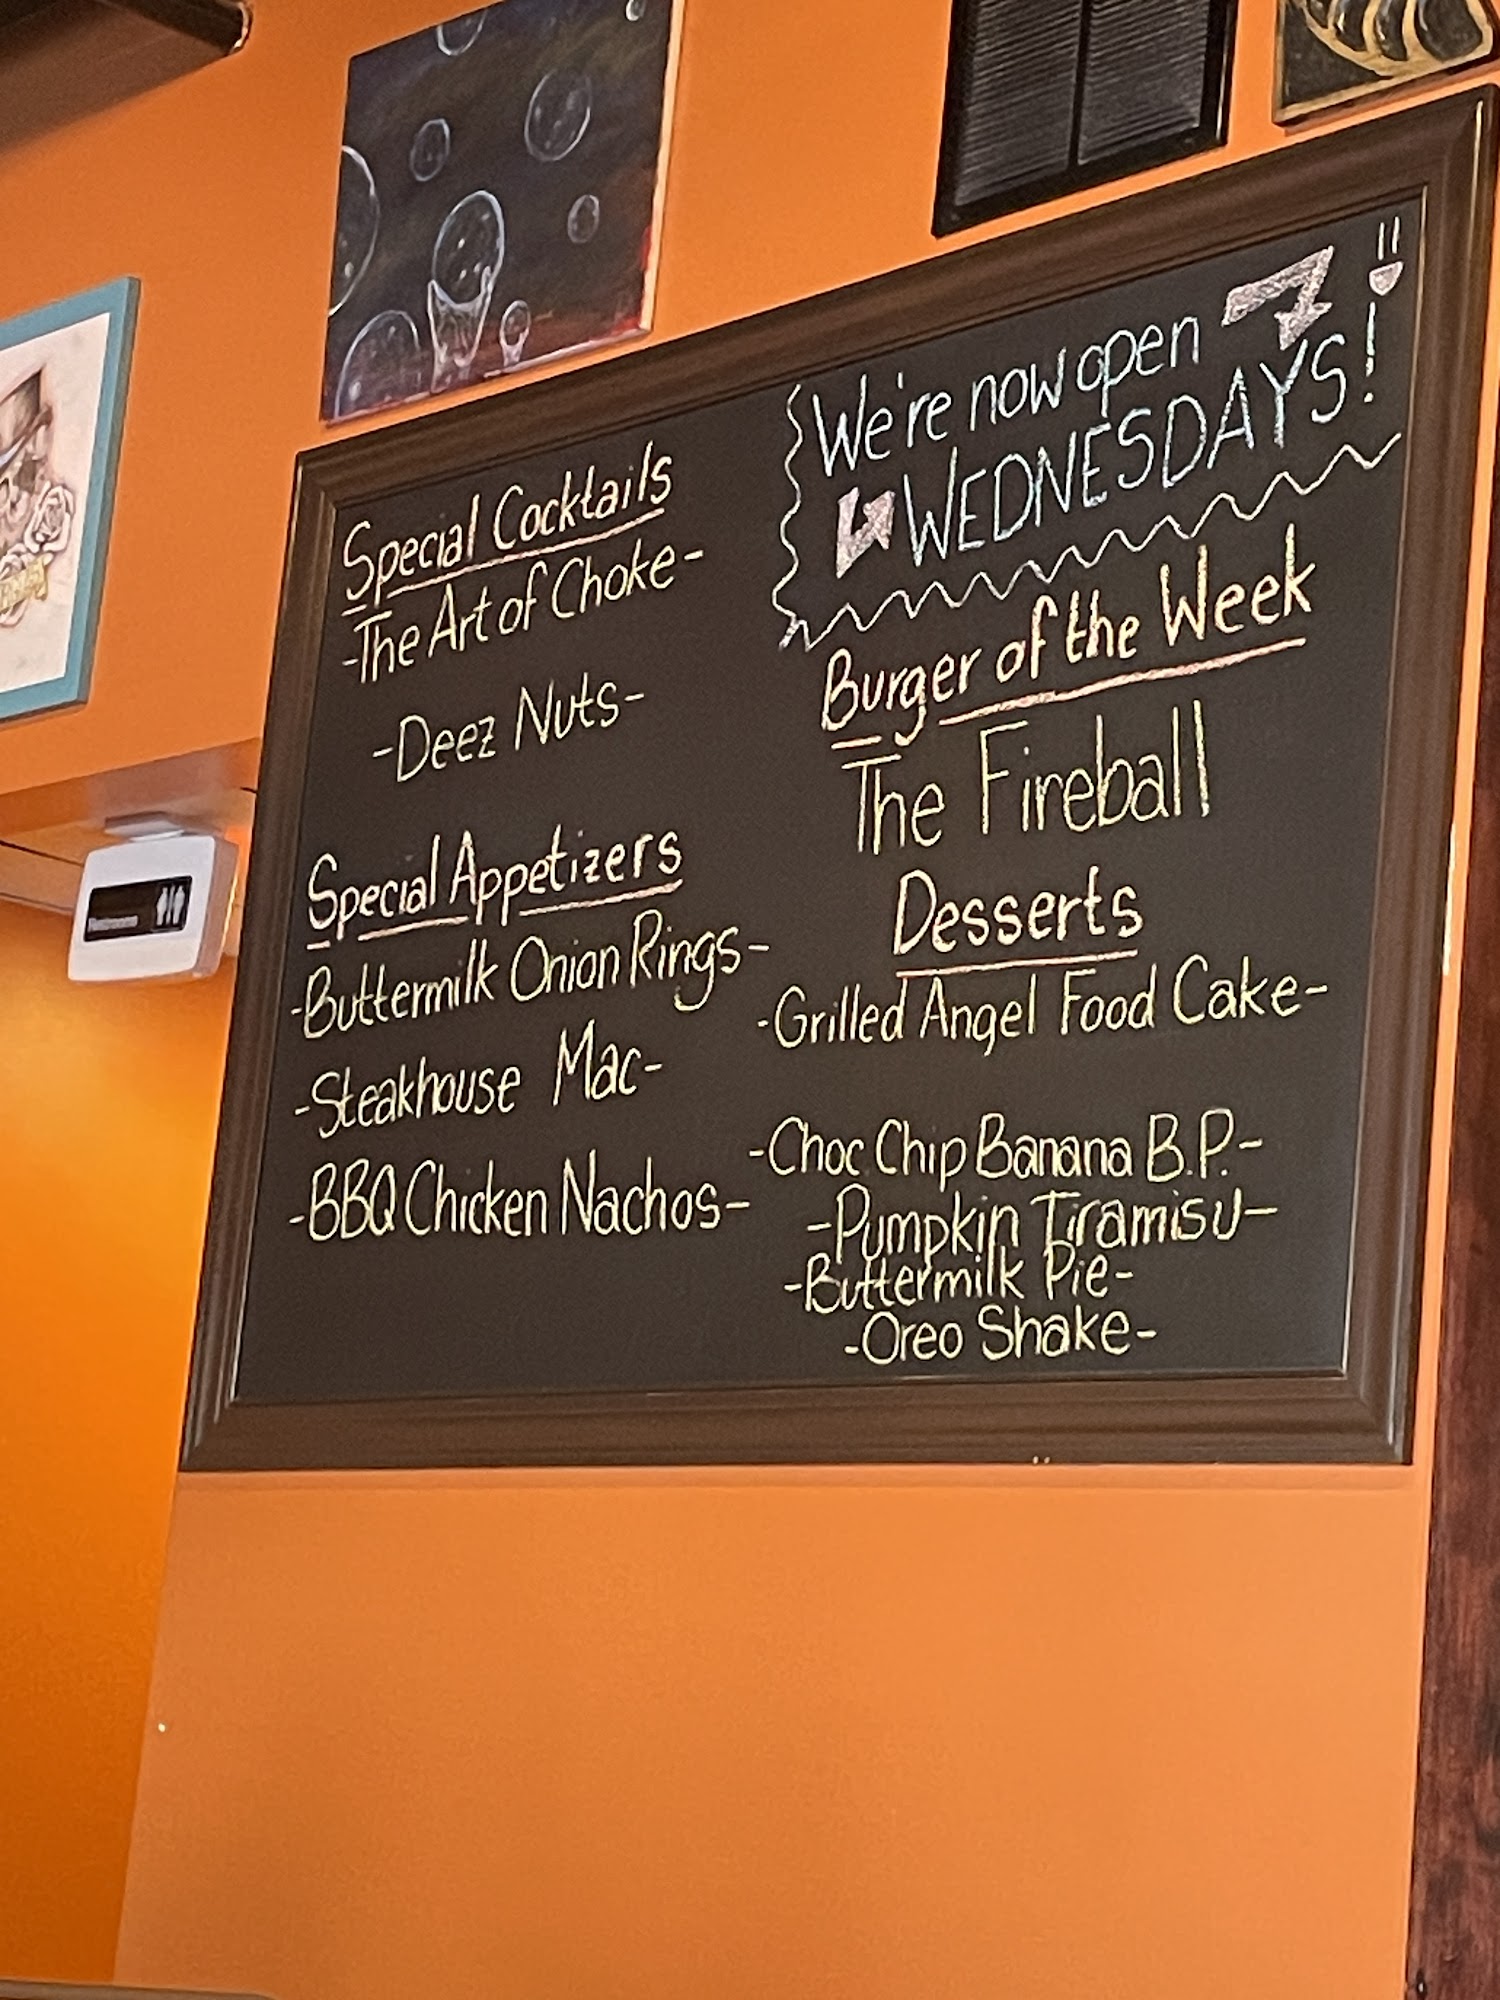 Special Cocktails
-The Art of Choke-
-Deez Nuts-
Special Appetizers
-Buttermilk Onion Rings-
-Steakhouse Mac-
-BBQ Chicken Nachos-
We're now open
WEDNESDAYS!
Burger of the Week
The Fireball
Desserts
-Grilled Angel Food Cake-
-Choc Chip Banana B.P.-
-Pumpkin Tiramisu-
-Buttermilk Pie-
-Oreo Shake-